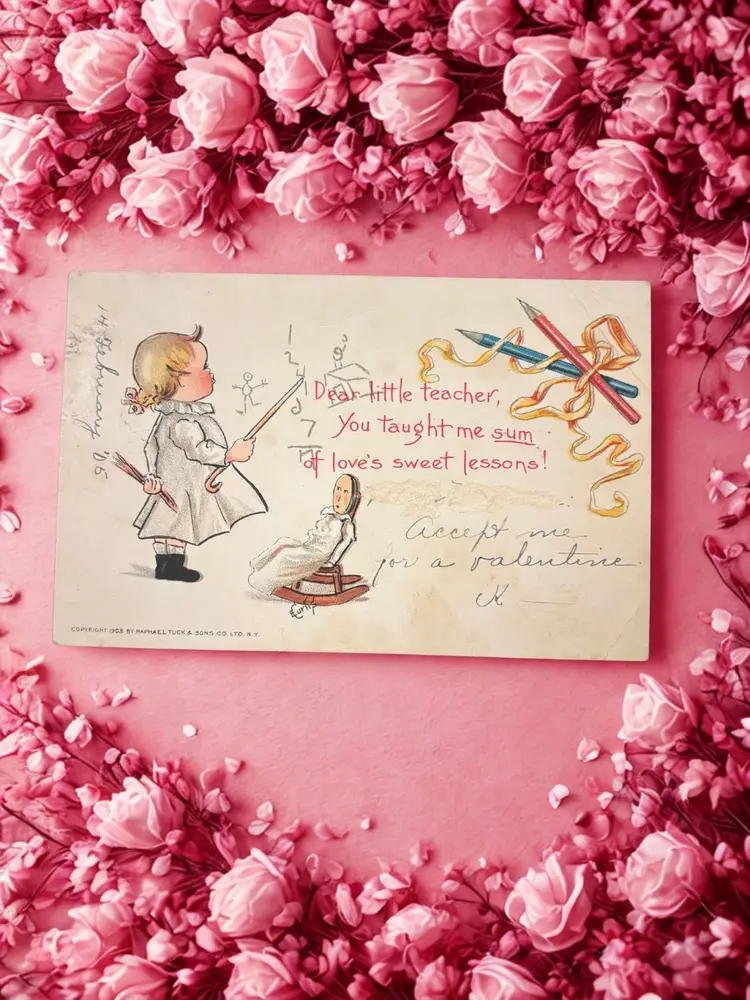 14 February '05
1
2
4
7
Dear little teacher,
You taught me sum
of love's sweet lessons!
Accept me
for a valentine.
K
Curtis
COPYRIGHT 1905 BY RAPHAEL TUCK & SONS CO. LTD. N.Y.